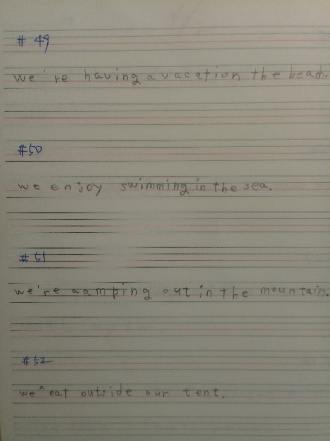 # 49
we're having a vacation the beach.
#50
we enjoy swimming in the sea.
#51
we're camping out in the mountain.
#52
we eat outside our tent.